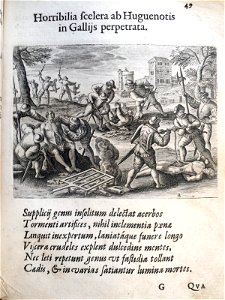 49
Horribilia scelera ab Huguenotis
in Gallijs perpetrata.
A
Supplicij genus insolitum delectat acerbos
Tormenti artifices, nihil inclementia pœnæ
Linquit inexpertum, laniatáque funere longo
Viscera crudeles explent dulcedine mentes,
Nec leti repetunt genus ut fastidia tollant
Cædis, & in varias satiantur lumina mortes.
G
QVA